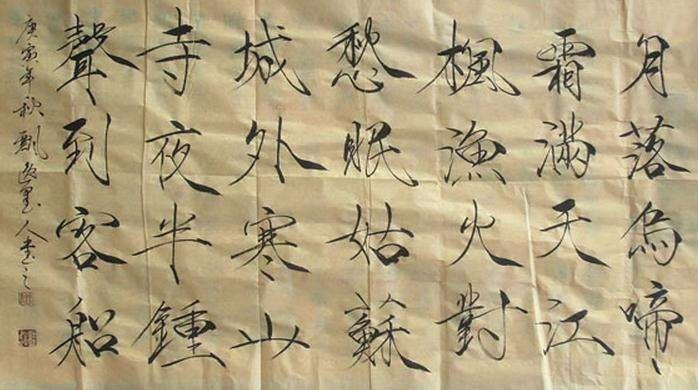 月落烏啼
霜滿天江
楓漁火對
愁眠姑蘇
城外寒山
寺夜半鍾
聲到客船
庚寅年秋劉逸墨人書之